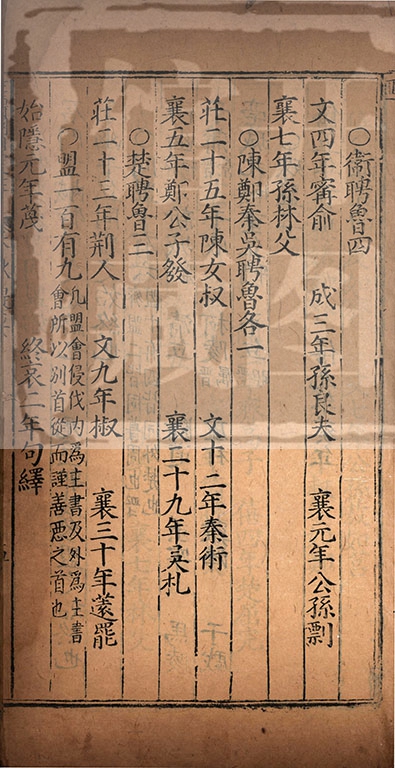 ○衛聘魯四
文四年甯俞 成三年孫良夫 襄元年公孫剽
襄七年孫林父
○陳鄭秦吳聘魯各一
莊二十五年陳女叔 文十二年秦術
襄五年鄭公子發 襄二十九年吳札
○楚聘魯三
莊二十三年荆人 文九年椒 襄三十年薳罷
○盟一百有九凡盟會侵伐内為主書及外為主書
會所以别首從而謹善惡之首也
始隱元年蔑 終哀二年句繹